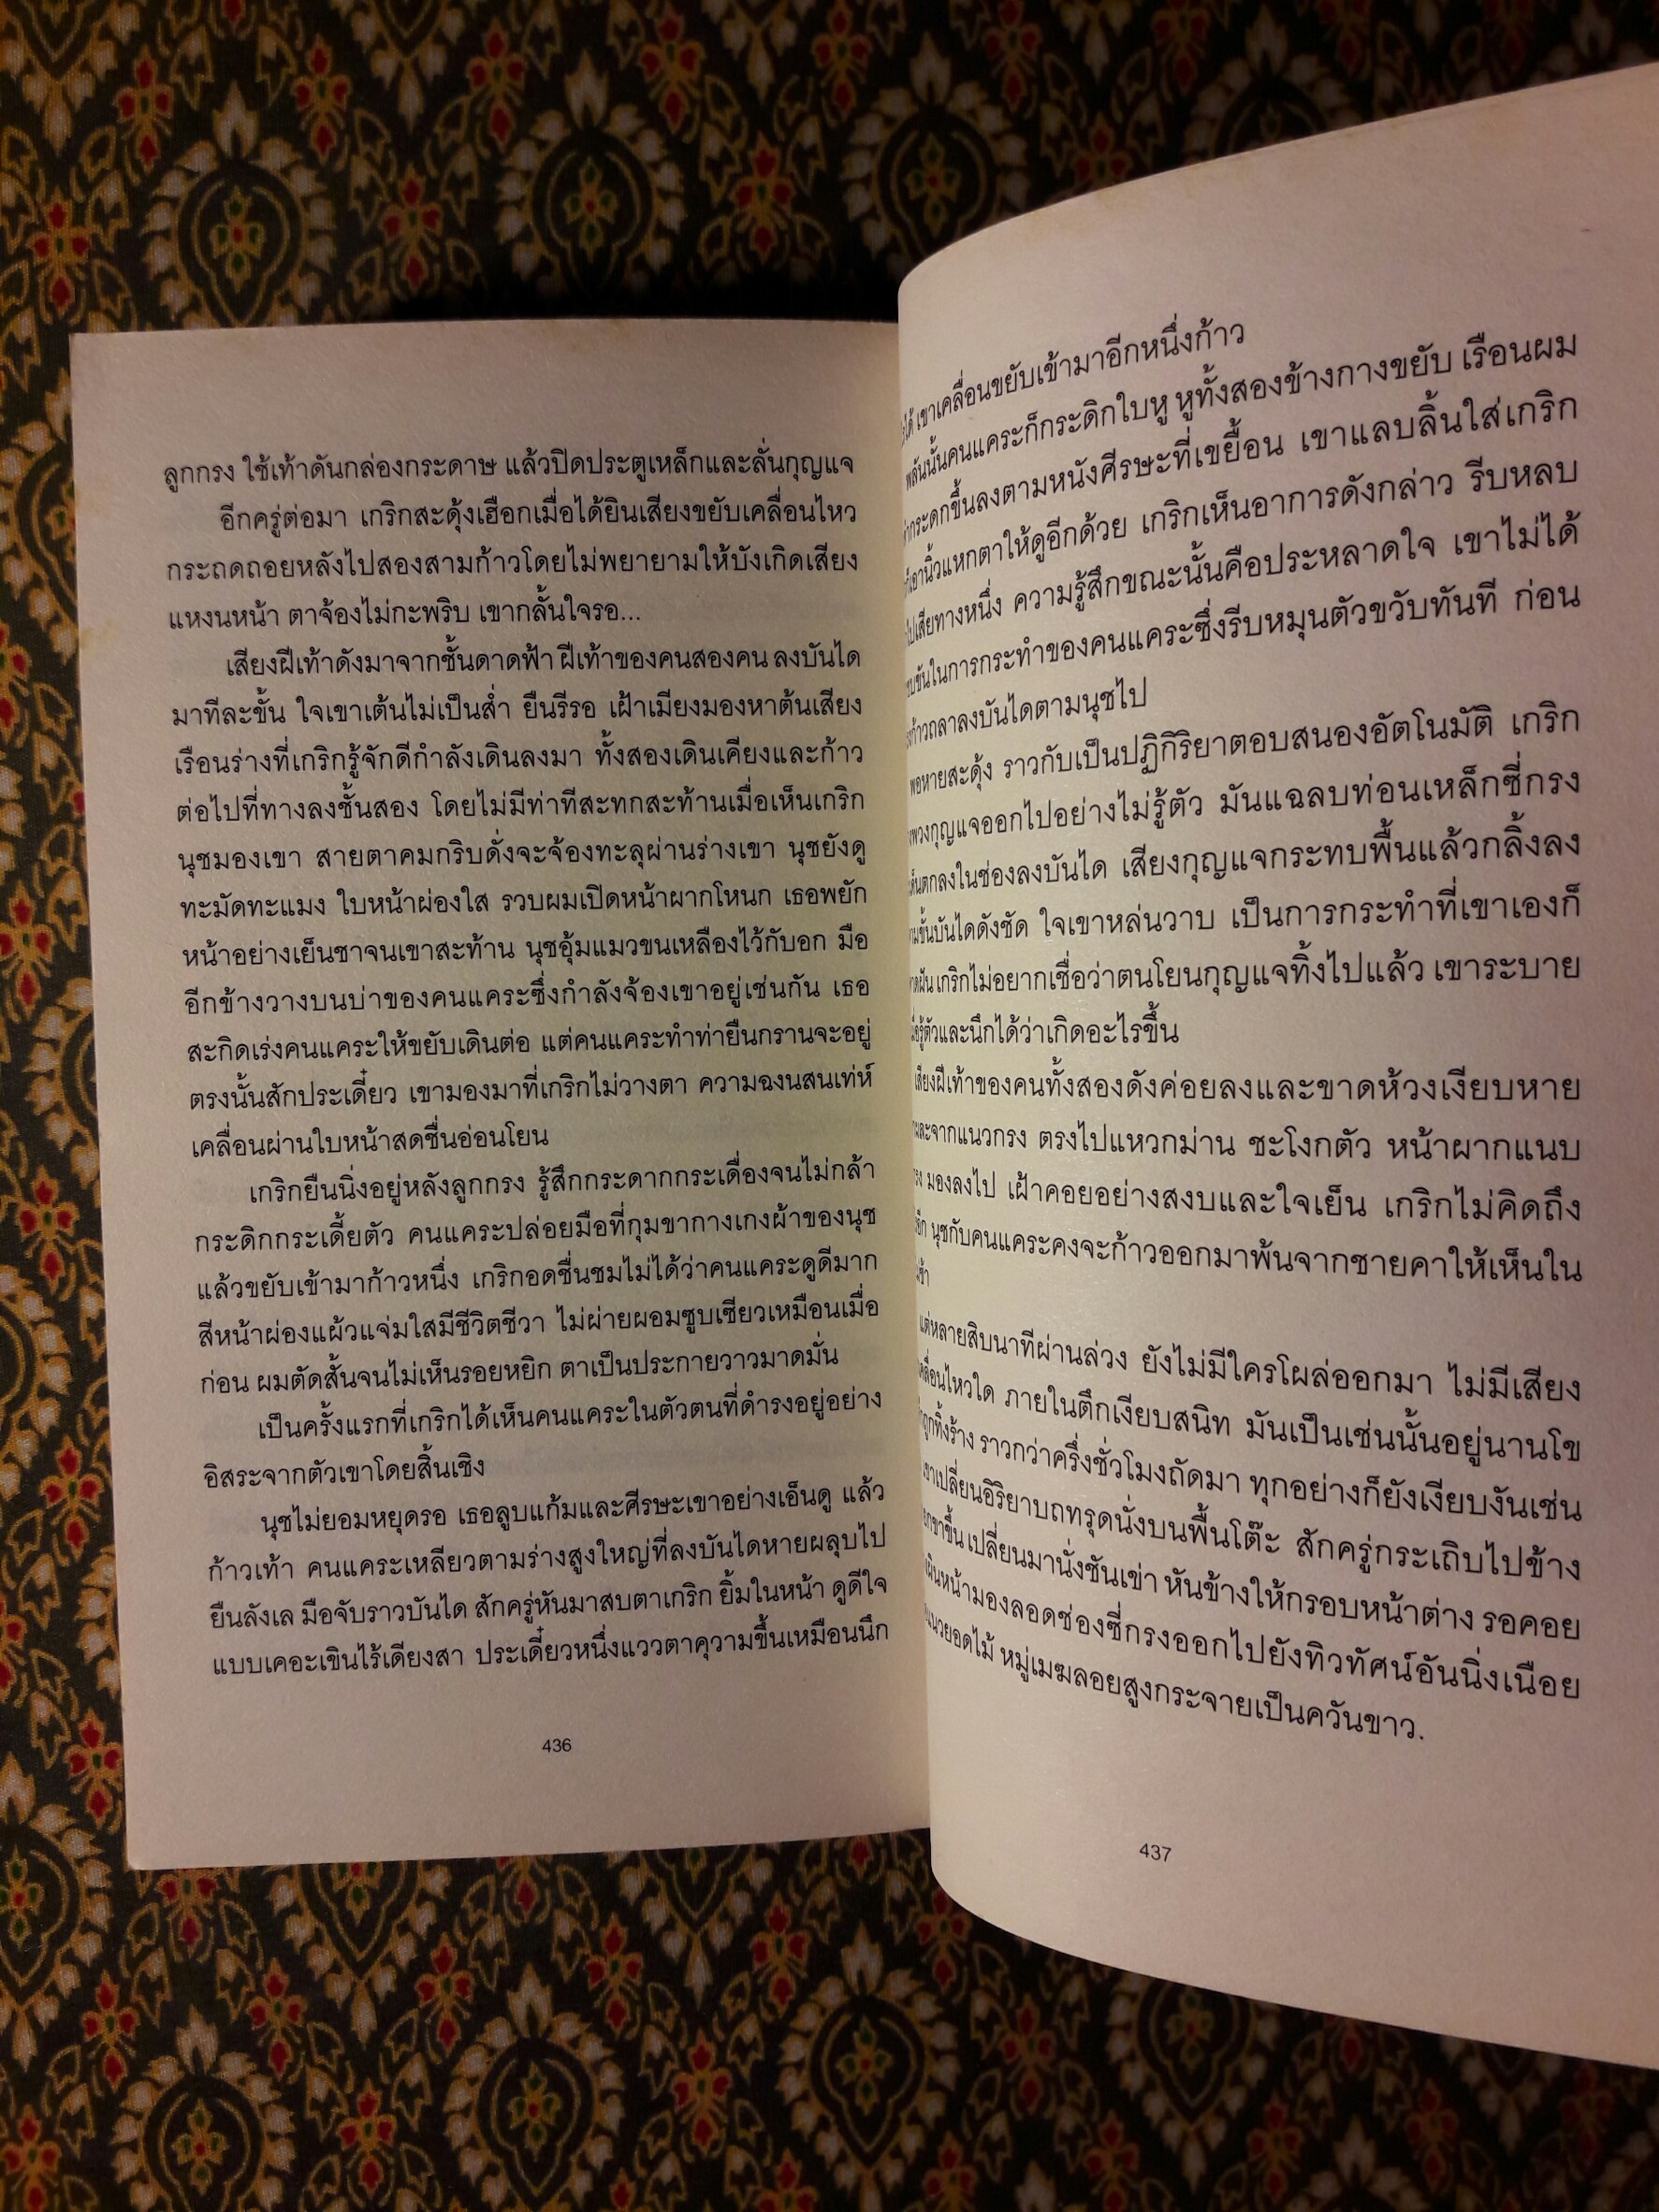 ลูกกรง ใช้เท้าดันกล่องกระดาษ แล้วปิดประตูเหล็กและลั่นกุญแจ
อีกครู่ต่อมา เกริกสะดุ้งเฮือกเมื่อได้ยินเสียงขยับเคลื่อนไหว
กระถดถอยหลังไปสองสามก้าวโดยไม่พยายามให้บังเกิดเสียง
แหงนหน้า ตาจ้องไม่กะพริบ เขากลั้นใจรอ...
เสียงฝีเท้าดังมาจากชั้นดาดฟ้า ฝีเท้าของคนสองคน ลงบันได
มาทีละขั้น ใจเขาเต้นไม่เป็นส่ำ ยืนรีรอ เฝ้าเมียงมองหาต้นเสียง
เรือนร่างที่เกริกรู้จักดีกำลังเดินลงมา ทั้งสองเดินเคียงและก้าว
ต่อไปที่ทางลงชั้นสอง โดยไม่มีท่าทีสะทกสะท้านเมื่อเห็นเกริก
นุชมองเขา สายตาคมกริบดั่งจะจ้องทะลุผ่านร่างเขา นุชยังดู
ทะมัดทะแมง ใบหน้าผ่องใส รวบผมเปิดหน้าผากโหนก เธอพยัก
หน้าอย่างเย็นชาจนเขาสะท้าน นุชอุ้มแมวขนเหลืองไว้กับอก มือ
อีกข้างวางบนบ่าของคนแคระซึ่งกำลังจ้องเขาอยู่เช่นกัน เธอ
สะกิดเร่งคนแคระให้ขยับเดินต่อ แต่คนแคระทำท่ายืนกรานจะอยู่
ตรงนั้นสักประเดี๋ยว เขามองมาที่เกริกไม่วางตา ความฉงนสนเท่ห์
เคลื่อนผ่านใบหน้าสดชื่นอ่อนโยน
เกริกยืนนิ่งอยู่หลังลูกกรง รู้สึกกระดากกระเดื่องจนไม่กล้า
กระดิกกระเดี้ยตัว คนแคระปล่อยมือที่กุมขากางเกงผ้าของนุช
แล้วขยับเข้ามาก้าวหนึ่ง เกริกอดชื่นชมไม่ได้ว่าคนแคระดูดีมาก
สีหน้าผ่องแผ้วแจ่มใสมีชีวิตชีวา ไม่ผ่ายผอมซูบเซียวเหมือนเมื่อ
ก่อน ผมตัดสั้นจนไม่เห็นรอยหยิก ตาเป็นประกายวาวมาดมั่น
เป็นครั้งแรกที่เกริกได้เห็นคนแคระในตัวตนที่ดำรงอยู่อย่าง
อิสระจากตัวเขาโดยสิ้นเชิง
นุชไม่ยอมหยุดรอ เธอลูบแก้มและศีรษะเขาอย่างเอ็นดู แล้ว
ก้าวเท้า คนแคระเหลียวตามร่างสูงใหญ่ที่ลงบันไดหายผลุบไป
ยืนลังเล มือจับราวบันได สักครู่หันมาสบตาเกริก ยิ้มในหน้า ดูดีใจ
แบบเคอะเขินไร้เดียงสา ประเดี๋ยวหนึ่งแววตาคุวามขึ้นเหมือนนึก
436
เขาเคลื่อนขยับเข้ามาอีกหนึ่งก้าว
พลันนั้นคนแคระก็กระดิกใบหู หูทั้งสองข้างกางขยับ เรือนผม
กระดกขึ้นลงตามหนังศีรษะที่เขยื้อน เขาแลบลิ้นใส่เกริก
เอานิ้วแหกตาให้ดูอีกด้วย เกริกเห็นอาการดังกล่าว รีบหลบ
ไปเสียทางหนึ่ง ความรู้สึกขณะนั้นคือประหลาดใจ เขาไม่ได้
ในการกระทำของคนแคระซึ่งรีบหมุนตัวขวับทันที ก่อน
ก้าวถลาลงบันไดตามนุชไป
พอหายสะดุ้ง ราวกับเป็นปฏิกิริยาตอบสนองอัตโนมัติ เกริก
พวงกุญแจออกไปอย่างไม่รู้ตัว มันแฉลบท่อนเหล็กซี่กรง
ตกลงในช่องลงบันได เสียงกุญแจกระทบพื้นแล้วกลิ้งลง
ขั้นบันไดดังชัด ใจเขาหล่นวาบ เป็นการกระทำที่เขาเองก็
เกริกไม่อยากเชื่อว่าตนโยนกุญแจทิ้งไปแล้ว เขาระบาย
รู้ตัวและนึกได้ว่าเกิดอะไรขึ้น
เสียงฝีเท้าของคนทั้งสองดังค่อยลงและขาดห้วงเงียบหาย
ผละจากแนวกรง ตรงไปแหวกม่าน ชะโงกตัว หน้าผากแนบ
มองลงไป เฝ้าคอยอย่างสงบและใจเย็น เกริกไม่คิดถึง
นุชกับคนแคระคงจะก้าวออกมาพ้นจากชายคาให้เห็นใน
แต่หลายสิบนาทีผ่านล่วง ยังไม่มีใครโผล่ออกมา ไม่มีเสียง
เคลื่อนไหวใด ภายในตึกเงียบสนิท มันเป็นเช่นนั้นอยู่นานโข
ถูกทิ้งร้าง ราวกว่าครึ่งชั่วโมงถัดมา ทุกอย่างก็ยังเงียบงันเช่น
เขาเปลี่ยนอิริยาบถทรุดนั่งบนพื้นโต๊ะ สักครู่กระเถิบไปข้าง
ยกขาขึ้น เปลี่ยนมานั่งชันเข่า หันข้างให้กรอบหน้าต่าง รอคอย
เมินหน้ามองลอดช่องซี่กรงออกไปยังทิวทัศน์อันนิ่งเนือย
แนวยอดไม้ หมู่เมฆลอยสูงกระจายเป็นควันขาว.
437